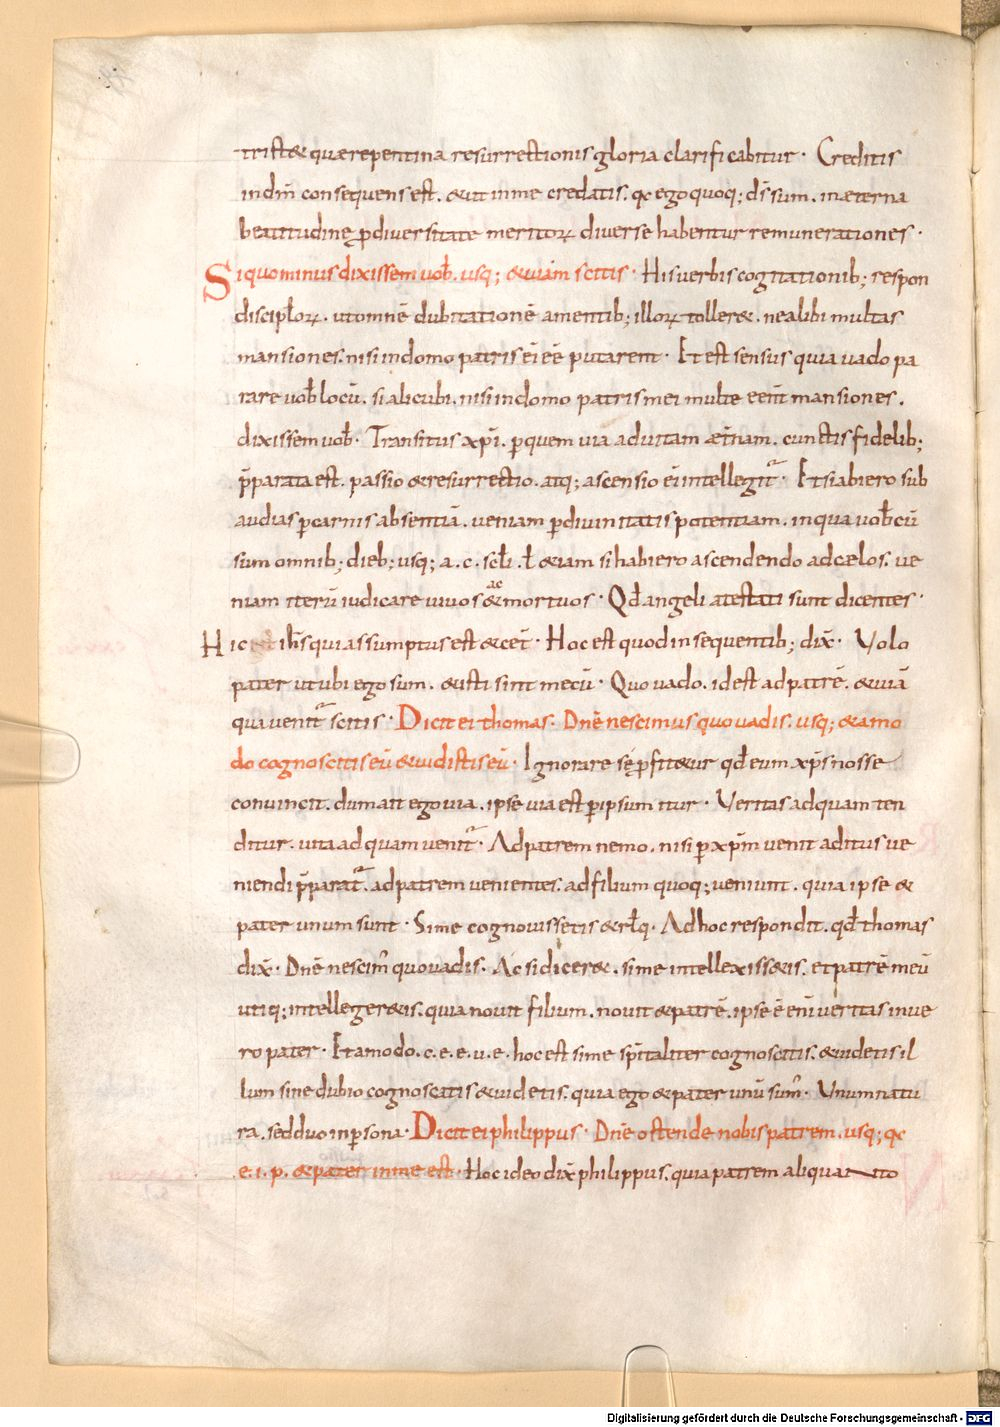 trist& quę repentina resurrectionis gloria clarificabitur · Creditis
indm̅ consequens est . &ut inme credatis . qc ego quoq; ds̅ sum . inæterna
beatitudine ꝑdiuersitate meritoꝝ diuerse habentur remunerationes ·
Si quo minus dixissem uob̅ . usq; &uiam scitis · His uerbis cogitationib; respon
discipl̅oꝝ · ut omnē dubitationē amentib; illoꝝ toller& . ne alibi multas
mansiones . nisi indomo patris eī ee̅ putarent · Et est sensus quia uado pa
rare uob̅ locū . si alicubi . nisi indomo patris mei multe een̅t mansiones .
dixissem uob̅ · Transitus xp̅i . ꝑquem uia aduitam æt̅nam . cunctis fidelib;
p̅parata est . passio &resurrectio . atq; ascensio eī intellegit᷑ · Et si abiero sub
audias ꝑcarnis absentiā . ueniam ꝑdiuinitatis potentiam . inqua uob̅cū
sum omnib; dieb; usq; a . c . scl̅i . ł &iam si habiero ascendendo adcælos . ue
niam iterū iudicare uiuos ac &mortuos · Qd̅ angeli atestati sunt dicentes ·
Hic est ihs̅ qui assumptus est &cet̅ · Hoc est quod insequentib; dix̅ · Volo
pater ut ubi ego sum . &isti sint mecū · Quo uado . id est ad patrē . &uiā
qua uenit᷑ scitis · Dicit ei thomas · Dn̅e nescimus quo uadis . usq; &amo
do cognoscitis eū &uidistis eū · Ignorare se ꝓfit&ur qd̅ eum xp̅s nosse
conuincit . dum ait ego uia . ipse uia est ꝑipsum itur · Veritas adquam ten
ditur . uita ad quam uenit᷑ · Ad patrem nemo . nisi ꝑ xp̅m uenit aditus ue
niendi p̅parat᷑ . ad patrem uenientes . ad filium quoq; ueniunt . quia ipse &
pater unum sunt · Si me cognouissetis &rl̅q · Ad hoc respondit . qd̅ thomas
dix̅ · Dn̅e nescim̅ quo uadis · Ac si dicer& . si me intellexiss&is . et patrē meū
utiq; intelleger&is . quia nouit filium . nouit &patrē . ipse ē enī ueritas inue
ro pater · Et amodo . c . e . e . u . e . hoc est si me sp̅italiter cognoscitis . &uidetis il
lum sine dubio cognoscatis &uidetis . quia ego &pater unū sum̅ · Vnum natu
ra . sed duo inꝑsona · Dicit ei philippus · Dn̅e ostende nobis patrem . usq; qc
e . i . p . &pater in me est · Hoc ideo dix̅ philippus . quia patrem aliquanto
Digitalisierung gefördert durch die Deutsche Forschungsgemeinschaft - DFG